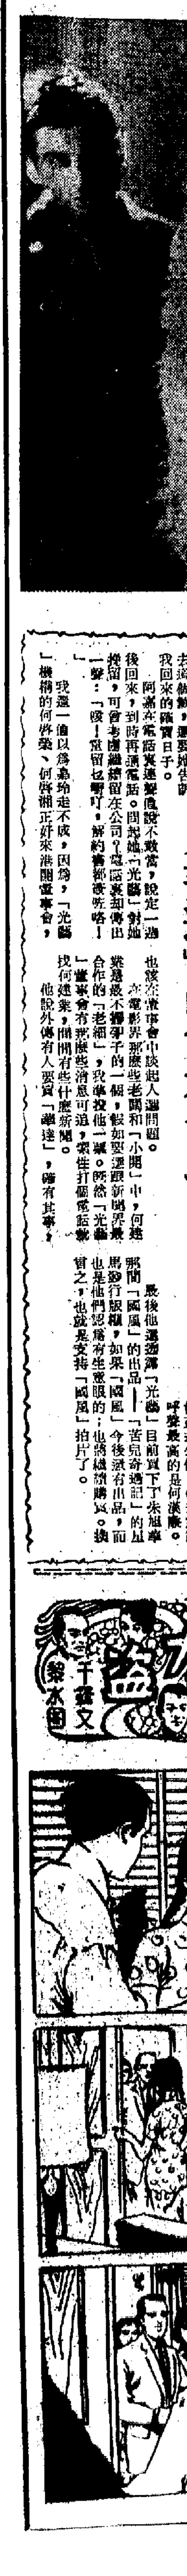 我回來的確實日子。
阿嘉在電話裏連聲說不敢當,說定一週
後回來,到時再通電話。問起她「光藝」對她
挽留,可會考慮繼續留在公司?電話裏却傳出
一聲:「唆!當留乜嘢吖,解約書都簽咗咯!
」
我還一個以為嘉玲走不成,因為,「光藝
」機構的何啓榮、何啓湘正好來港開董事會,
也該在董事會中談起人選問題。
在電影界那麼些老闆和「小開」中,何建
業是最不擺架子的一個,假如要選跟新聞界最
合作的「老細」,我準投他一票。既然「光藝
」董事會有那麼些消息可追,索性打個電話就
找何建業,問問有些什麼新聞。
他說外傳有人要買「華達」,確有其事,
呼聲最高的是何漢廉。
最後他還透露「光藝」目前買下了朱旭華
那間「國風」的出品——「苦兒奇遇記」的星
馬發行版權,如果「國風」今後還有出品,而
也是他們認為有生意眼的;也將繼續購買。換
言之,也就是支持「國風」拍片了。
盜
文
黎水圖